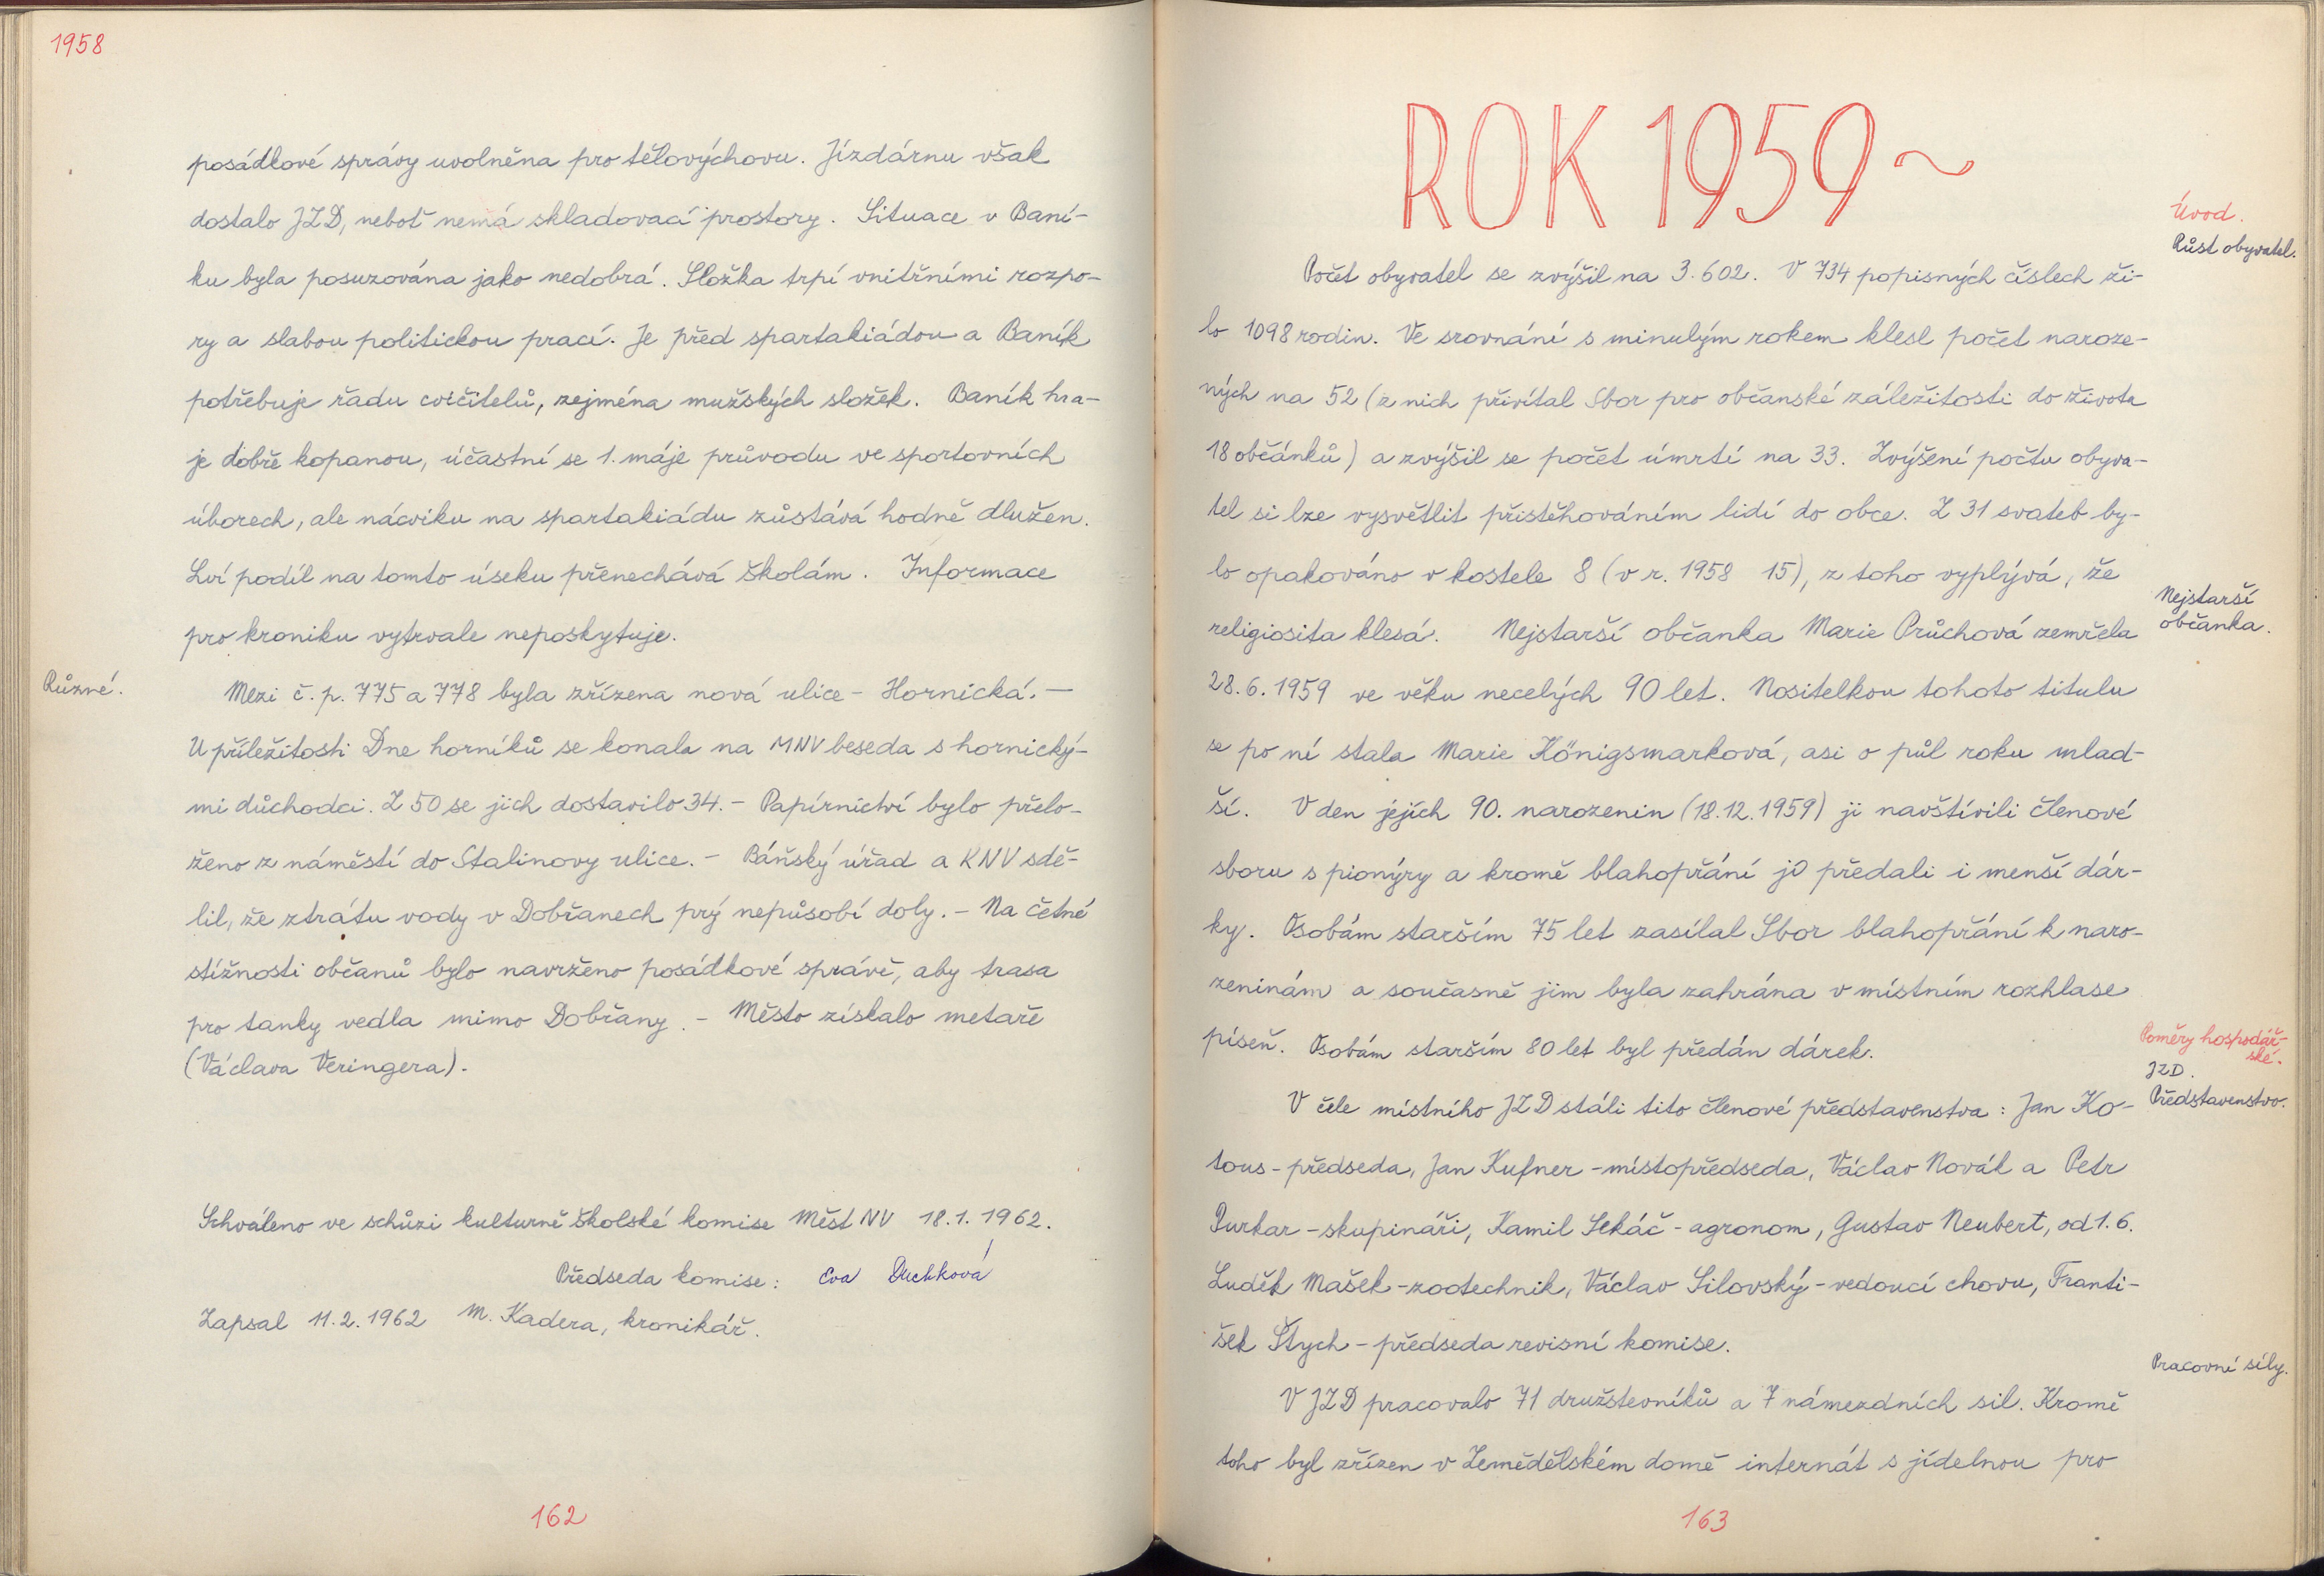 1958
posádkové správy uvolněna pro tělovýchovu. Jízdárnu však
dostalo JZD, neboť nemá skladovací prostory. Situace v Baní-
ku byla posuzována jako nedobrá. Složka trpí vnitřními rozpo-
ry a slabou politickou prací. Je před spartakiádou a Baník
potřebuje řadu cvičitelů, zejména mužských složek. Baník hra-
je dobře kopanou, účastní se 1. máje průvodu ve sportovních
úborech, ale nácviku na spartakiádu zůstává hodně dlužen.
Lví podíl na tomto úseku přenechává školám. Informace
pro kroniku vytrvale neposkytuje.
Různé.
Mezi č. p. 775 a 778 byla zřízena nová ulice - Hornická. —
U příležitosti Dne horníků se konala na MNV beseda s hornický-
mi důchodci. Z 50 se jich dostavilo 34. - Papírnictví bylo přelo-
ženo z náměstí do Stalinovy ulice. - Báňský úřad a KNV sdě-
lil, že ztrátu vody v Dobřanech prý nepůsobí doly. - Na četné
stížnosti občanů bylo navrženo posádkové správě, aby trasa
pro tanky vedla mimo Dobřany. - Město získalo metaře
(Václava Veringera).
Schváleno ve schůzi kulturně školské komise Měst NV 18.1.1962.
Předseda komise: Eva Duchková
Zapsal 11.2.1962 M. Kadera, kronikář.
162
ROK 1959 ~
Úvod.
Růst obyvatel.
Počet obyvatel se zvýšil na 3.602. V 734 popisných číslech ži-
lo 1098 rodin. Ve srovnání s minulým rokem klesl počet naroze-
ných na 52 (z nich přivítal Sbor pro občanské záležitosti do života
18 občánků) a zvýšil se počet úmrtí na 33. Zvýšení počtu obyva-
tel si lze vysvětlit přistěhováním lidí do obce. Z 31 svateb by-
lo opakováno v kostele 8 (v r. 1958 15), z toho vyplývá, že
Nejstarší
občanka.
religiosita klesá. Nejstarší občanka Marie Průchová zemřela
28.6.1959 ve věku necelých 90 let. Nositelkou tohoto titulu
se po ní stala Marie Königsmarková, asi o půl roku mlad-
ší. V den jejích 90. narozenin (18.12.1959) ji navštívili členové
sboru s pionýry a kromě blahopřání jí předali i menší dár-
ky. Osobám starším 75 let zasílal Sbor blahopřání k naro-
zeninám a současně jim byla zahrána v místním rozhlase
píseň. Osobám starším 80 let byl předán dárek.
Poměry hospodář-
ské.
JZD.
Představenstvo.
V čele místního JZD stáli tito členové představenstva: Jan Ko-
tous - předseda, Jan Kufner - místopředseda, Václav Novák a Petr
Purkar - skupináři, Kamil Sekáč - agronom, Gustav Neubert, od 1.6.
Luděk Mašek - zootechnik, Václav Silovský - vedoucí chovu, Franti-
šek Štych - předseda revisní komise.
Pracovní síly.
V JZD pracovalo 71 družstevníků a 7 námezdních sil. Kromě
toho byl zřízen v Zemědělském domě internát s jídelnou pro
163